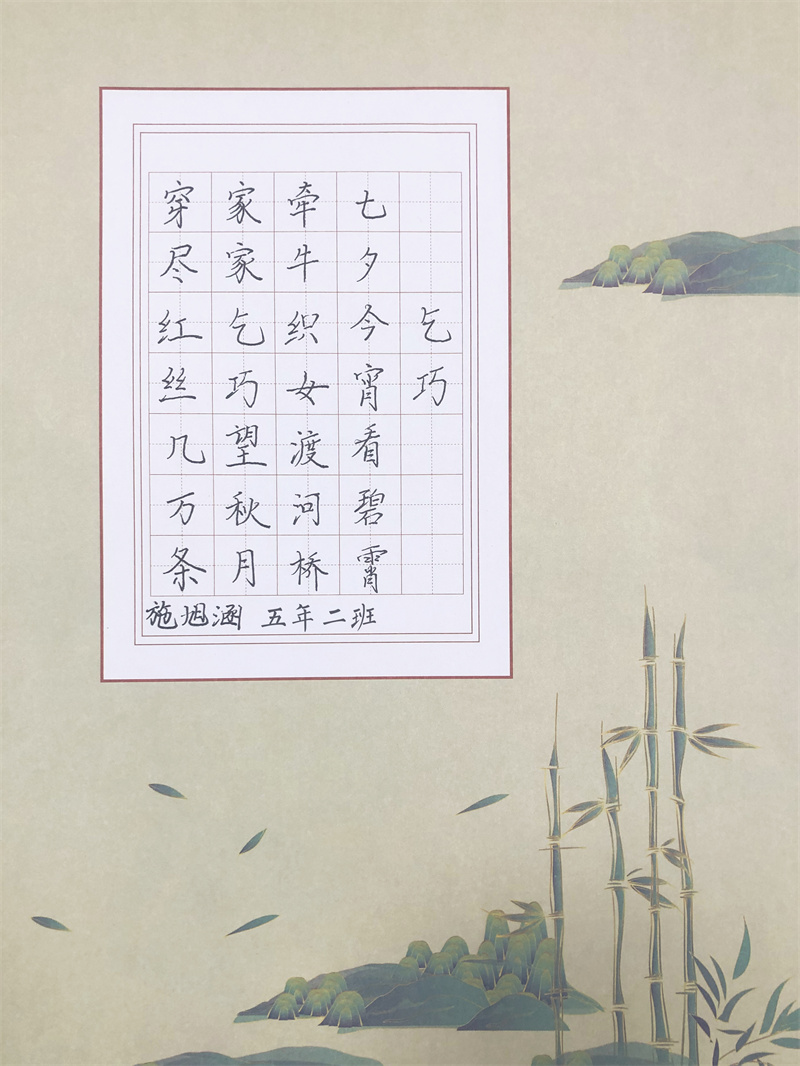 乞巧
七夕今宵看碧霄
牵牛织女渡河桥
家家乞巧望秋月
穿尽红丝几万条
施烟涵 五年二班